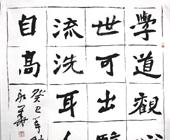 學道觀
世可出
流洗耳
自高
癸巳年